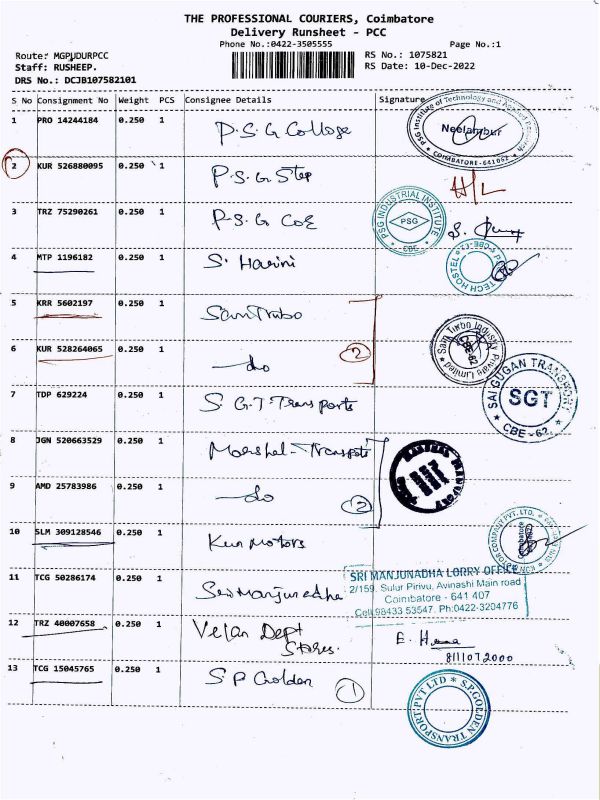 THE PROFESSIONAL COURIERS, Coimbatore
Delivery Runsheet - PCC
Phone No.:0422-3505555 Page No.:1
Route: MGPUDURPCC RS No.: 1075821
Staff: RUSHEEP. RS Date: 10-Dec-2022
DRS No.: DCJB107582101
S No Consignment No Weight PCS Consignee Details Signature
1 PRO 14244184 0.250 1 P.S.G College
PSG Institute of Technology and Applied Research
Neelambur
COIMBATORE-641062
2 KUR 526880095 0.250 1 P.S.G Step H/L
3 TRZ 75290261 0.250 1 P.S.G CoE
PSG INDUSTRIAL INSTITUTE
PSG
CBE
4 MTP 1196182 0.250 1 S. Harini
TECH HOSTEL
5 KRR 5602197 0.250 1 Sam Turbo
6 KUR 528264065 0.250 1 -do 2
Sam Turbo Industry Private Limited
CBE-62
7 TDP 629224 0.250 1 S G.T Transports
SAI GUGAN TRANSPORT
SGT
CBE-62.
8 JGN 520663529 0.250 1 Marshal-Transpots
9 AMD 25783986 0.250 1 -do 2
10 SLM 309128546 0.250 1 Kun Motors
Coimbatore
11 TCG 50286174 0.250 1 Sri Manjunadha
SRI MANJUNADHA LORRY OFFICE
2/159, Sulur Pirivu, Avinashi Main road
Coimbatore - 641 407
Cell:98433 53547, Ph:0422-3204776
12 TRZ 40007658 0.250 1 Velan Dept
Stores.
8111072000
13 TCG 15045765 0.250 1 S P Golden 1
S.P.GOLDEN TRANSPORT PVT LTD